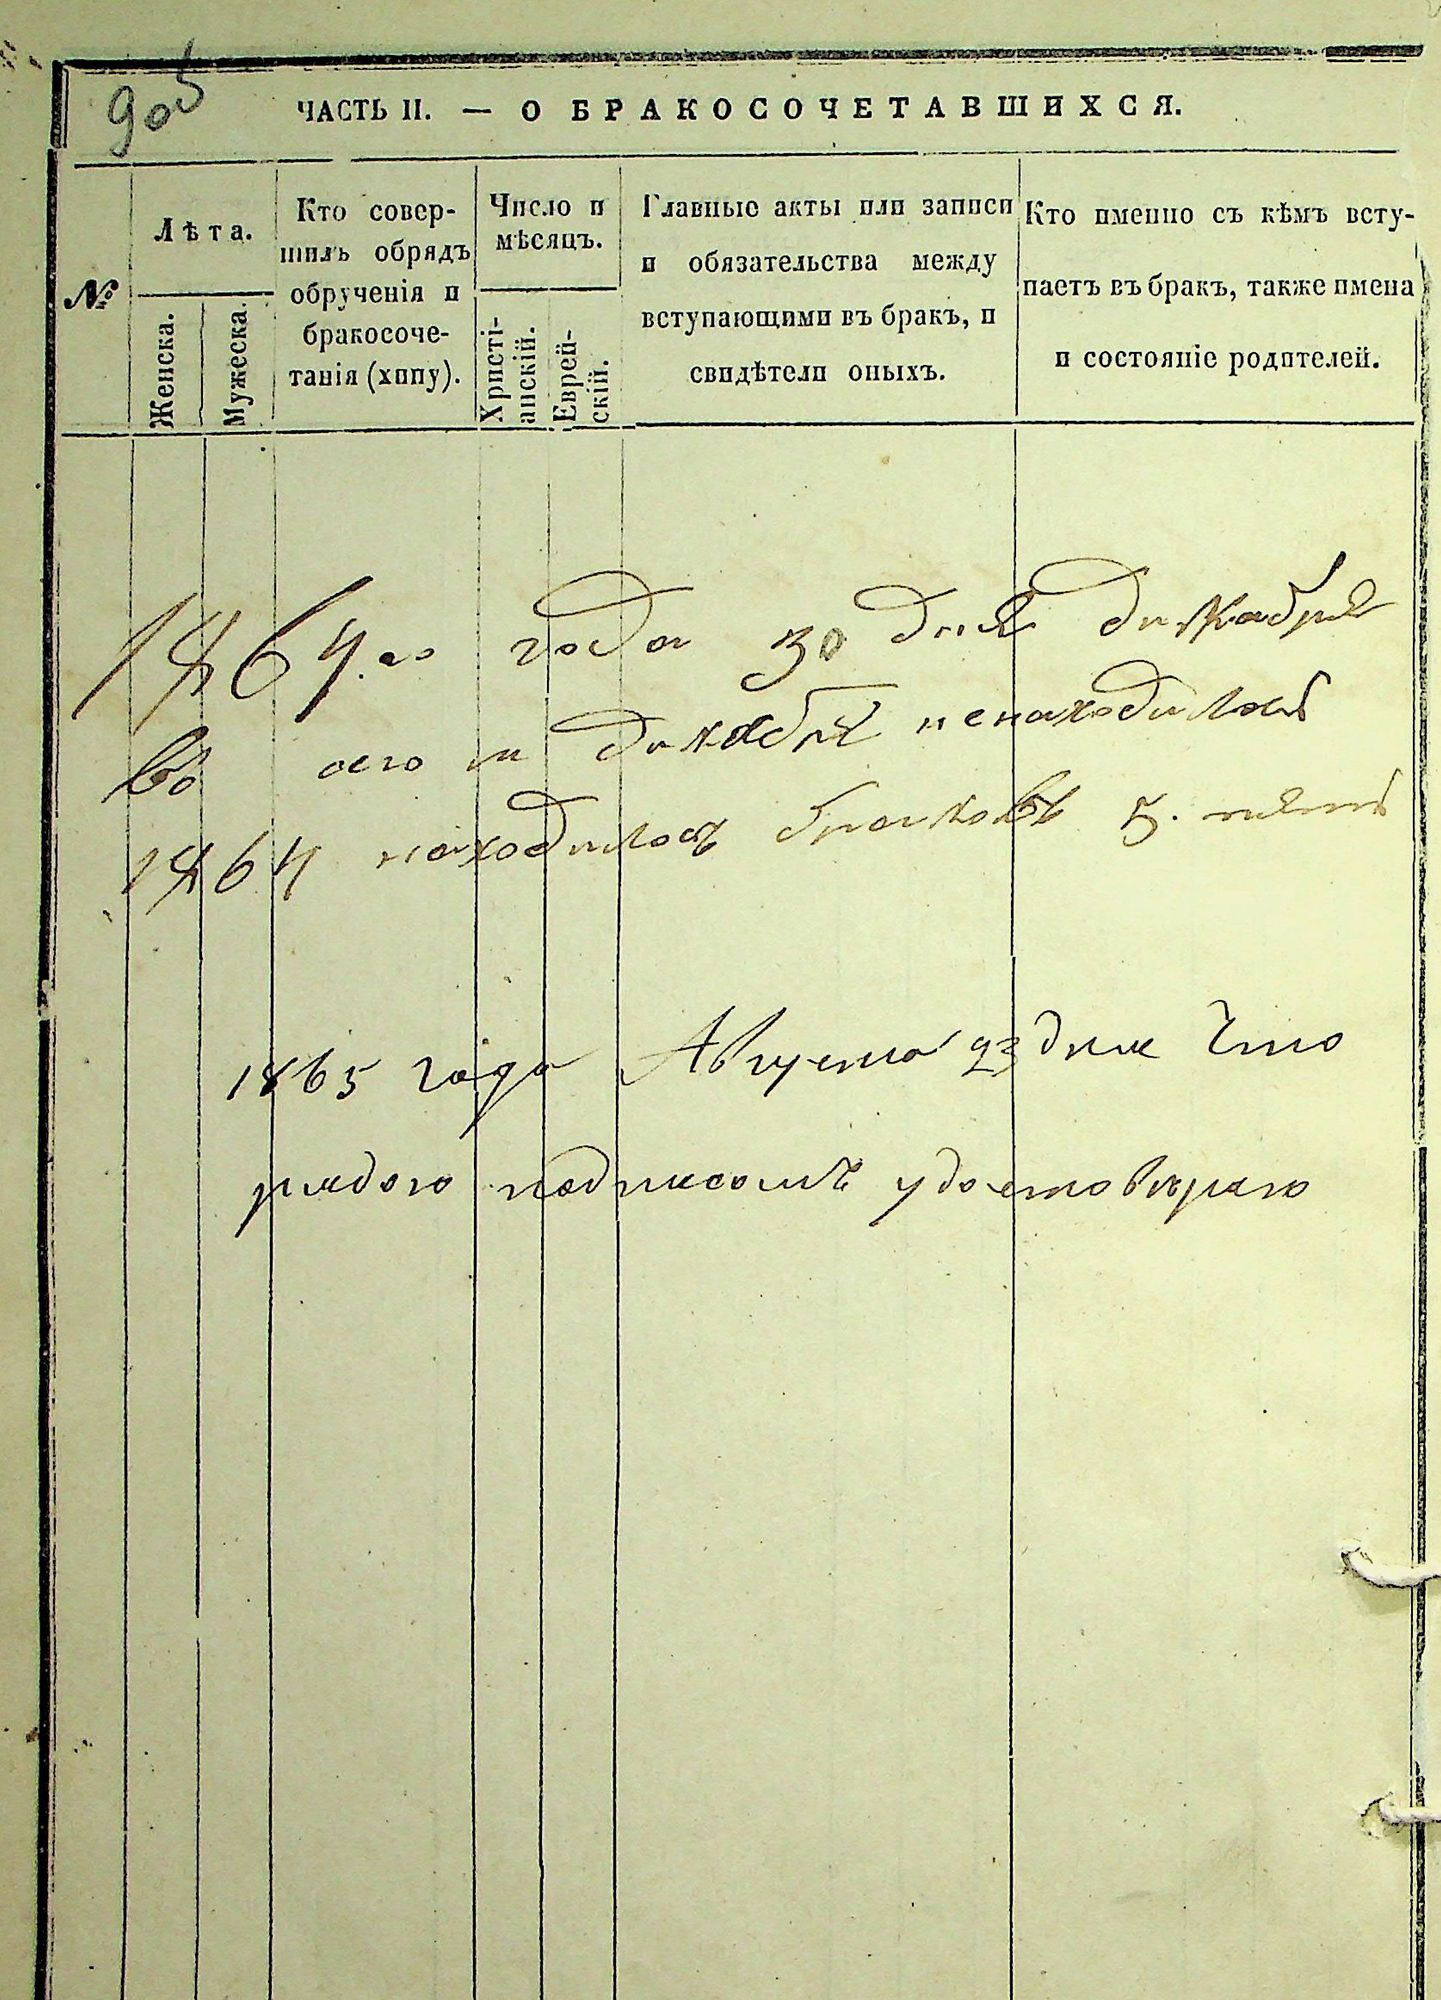 905
ЧАСТЬ II. — О БРАКОСОЧЕТАВШИХСЯ.
№
Лѣта.
Женска.
Мужеска.
Кто совер-
шилъ обрядъ
обрученія и
бракосоче-
танія (хипу).
Число и
мѣсяцъ.
Христі-
анскій.
Еврей-
скій.
Главные акты или записи
и обязательства между
вступающими въ бракъ, и
свидѣтели оныхъ.
Кто именно съ кѣмъ всту-
паетъ въ бракъ, также имена
и состояніе родителей.
1864.го года 30 дня декабря
во декабря ненаходилось
1864 находилось браковъ 5. пять
1865 года Августа 23 дня Что
удостовѣряю